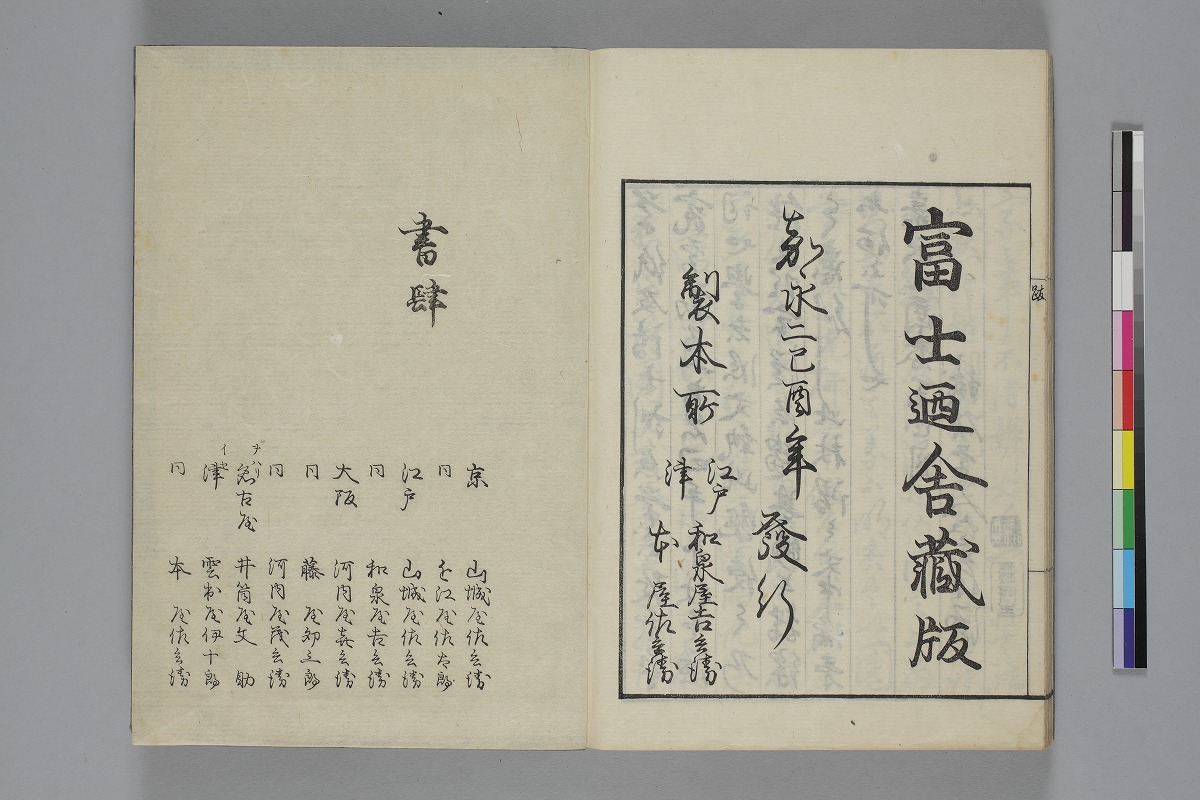 富士廼舎蔵版
嘉永二己酉年發行
製本所
江戸 和泉屋吉兵衛
津 本屋佐兵衛
跋
書肆
京 山城屋佐兵衛
同 近江屋佐太郎
江戸 山城屋佐兵衛
同 和泉屋吉兵衛
大阪 河内屋喜兵衛
同 藤屋卯三郎
同 河内屋茂兵衛
名古屋 井筒屋文助
津 雲出屋伊十郎
同 本屋佐兵衛